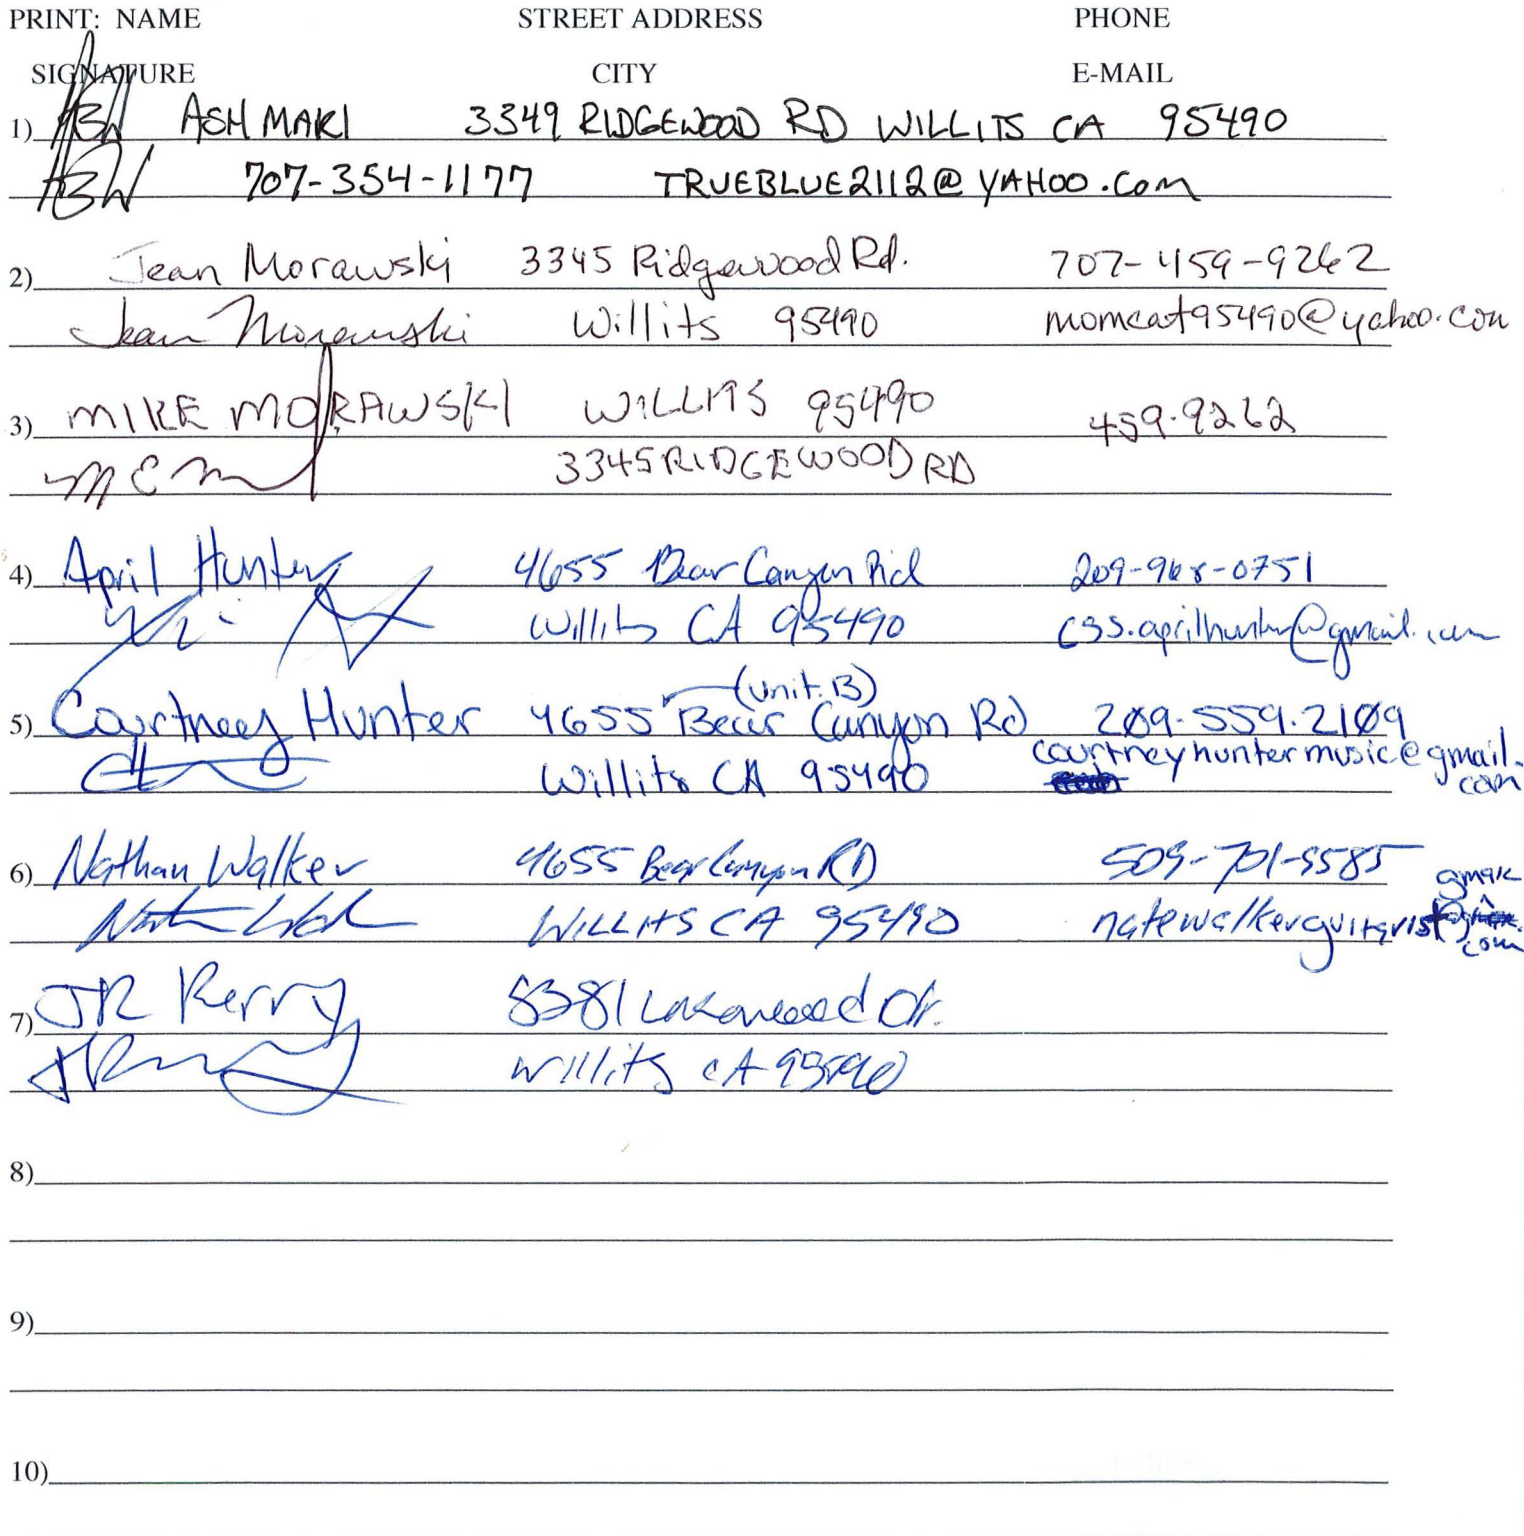 PRINT: NAME STREET ADDRESS PHONE
SIGNATURE CITY E-MAIL
1) ABW ASH MAKI 3349 RIDGEWOOD RD WILLITS CA 95490
ABW 707-354-1177 TRUEBLUE2112@YAHOO.COM
2) Jean Morawski 3345 Ridgewood Rd. 707-459-9262
Jean Morawski Willits 95490 momcat95490@yahoo.com
3) MIKE MORAWSKI WILLITS 95490 459.9262
3345 RIDGEWOOD RD
4) April Hunter 4655 Bear Canyon Rd 209-968-0751
Willits CA 95490 css.aprilhunter@gmail.com
(unit.B)
5) Courtney Hunter 4655 Bear Canyon Rd 209.559.2109
Willits CA 95490 courtneyhuntermusic@gmail.
com
6) Nathan Walker 4655 Bear Canyon RD 509-701-9585
gmail
WILLITS CA 95490 natewalkerguitarist@
com
7) JR Perry Dr.
Willits CA 95490
8)
9)
10)